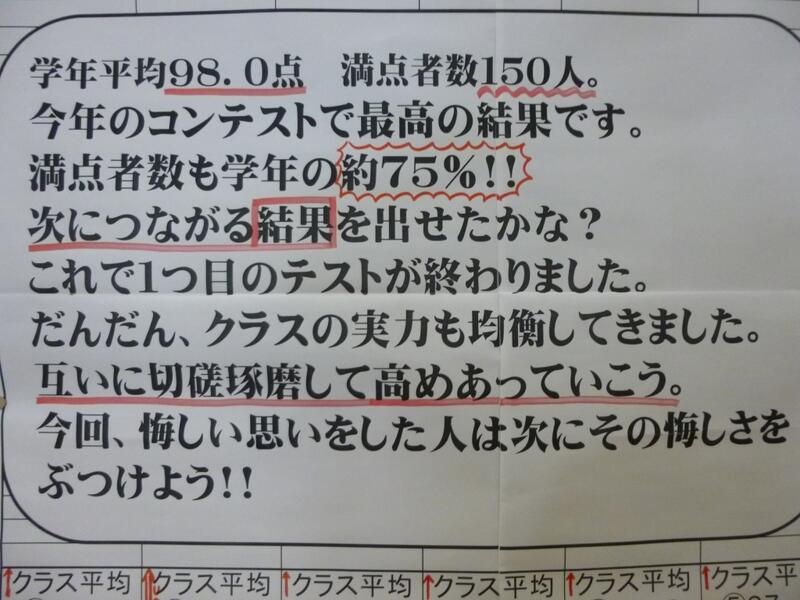 学年平均98.0点　満点者数150人。
今年のコンテストで最高の結果です。
満点者数も学年の約75%!!
次につながる結果を出せたかな？
これで1つ目のテストが終わりました。
だんだん、クラスの実力も均衡してきました。
互いに切磋琢磨して高めあっていこう。
今回、悔しい思いをした人は次にその悔しさを
ぶつけよう!!
↑クラス平均 ↑クラス平均 ↑クラス平均 ↑クラス平均 ↑クラス平均 ↑クラス平均